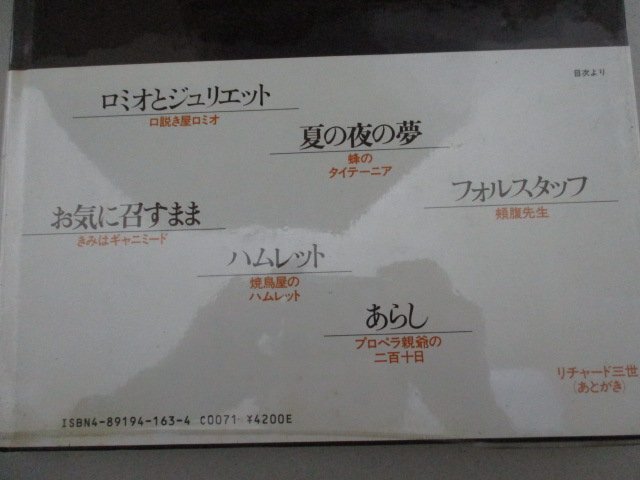 目次より
ロミオとジュリエット
口説き屋ロミオ
夏の夜の夢
蜂の
タイテーニア
フォルスタッフ
頬腹先生
お気に召すまま
きみはギャニミード
ハムレット
焼鳥屋の
ハムレット
あらし
プロペラ親爺の
二百十日
リチャード三世
(あとがき)
ISBN4-89194-163-4 C0071 ¥4200E